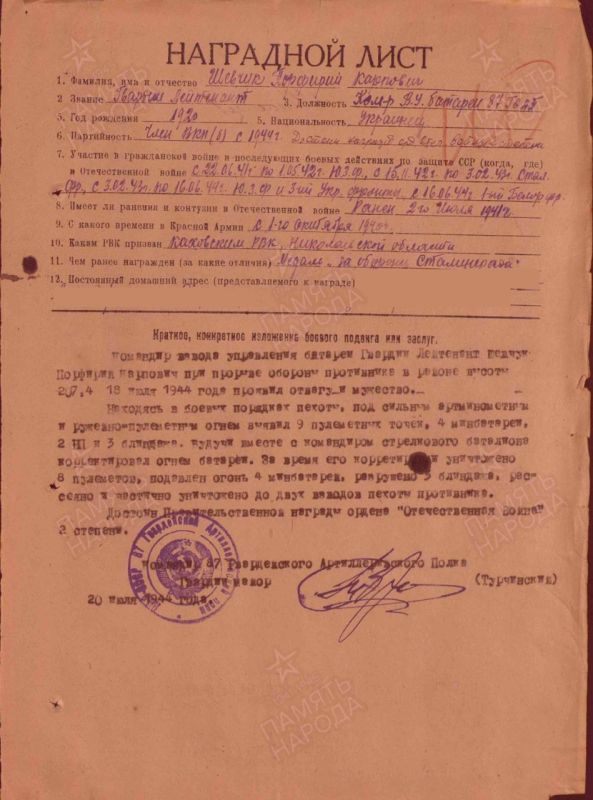 НАГРАДНОЙ ЛИСТ
1. Фамилия, имя и отчество Шевчук Порфирий Карпович
2 Звание Гвардии Лейтенант 3. Должность Ком-р В.У. батареи 87 Гв АП
5. Год рождения 1920 5. Национальность Украинец
6. Партийность Член ВКП(б) с 1944г.
7. Участие в гражданской войне и последующих боевых действиях по защите ССР (когда, где)
в Отечественной войне с 22.06.41г по 1.05.42г Ю.З.Ф., с 15.11.42г. по 3.02.43г Стал.
фр., с 3.02.43г по 16.06.44г. Ю.З.Ф и 3-ий Укр. фронты, с 16.06.44г 1-ый Белор фр.
8. Имеет ли ранения и контузии в Отечественной войне Ранен 2-го Июля 1941г.
9. С какого времени в Красной Армии с 1-го октября 1940г.
10. Каким РВК призван Каховским РВК, Николаевской области
11. Чем ранее награжден (за какие отличия) Медаль "За оборону Сталинграда"
12. Постоянный домашний адрес (представляемого к награде)
Краткое, конкретное изложение боевого подвига или заслуг.
Командир взвода управления батареи Гвардии Лейтенант Шевчук
Порфирий Карпович при прорыве обороны противника в районе высоты
207,4 18 июля 1944 года проявил отвагу и мужество.
Находясь в боевых порядках пехоты, под сильным артминометным
и ружейно-пулеметным огнем выявил 9 пулеметных точек, 4 минбатареи,
2 НП и 3 блиндажа. Будучи вместе с командиром стрелкового баталиона
корректировал огнем батареи. За время его корретировки уничтожено
8 пулеметов, подавлен огонь 4 минбатарей, разрушено 3 блиндажа, рас-
сеяно и частично уничтожено до двух взводов пехоты противника.
Достоин Правительственной награды ордена "Отечественная Война"
2 степени.
Командир 87 Гвардейского Артиллерийского Полка
Гвардии майор (Турчинский)
20 июля 1944 года.
ПАМЯТЬ НАРОДА